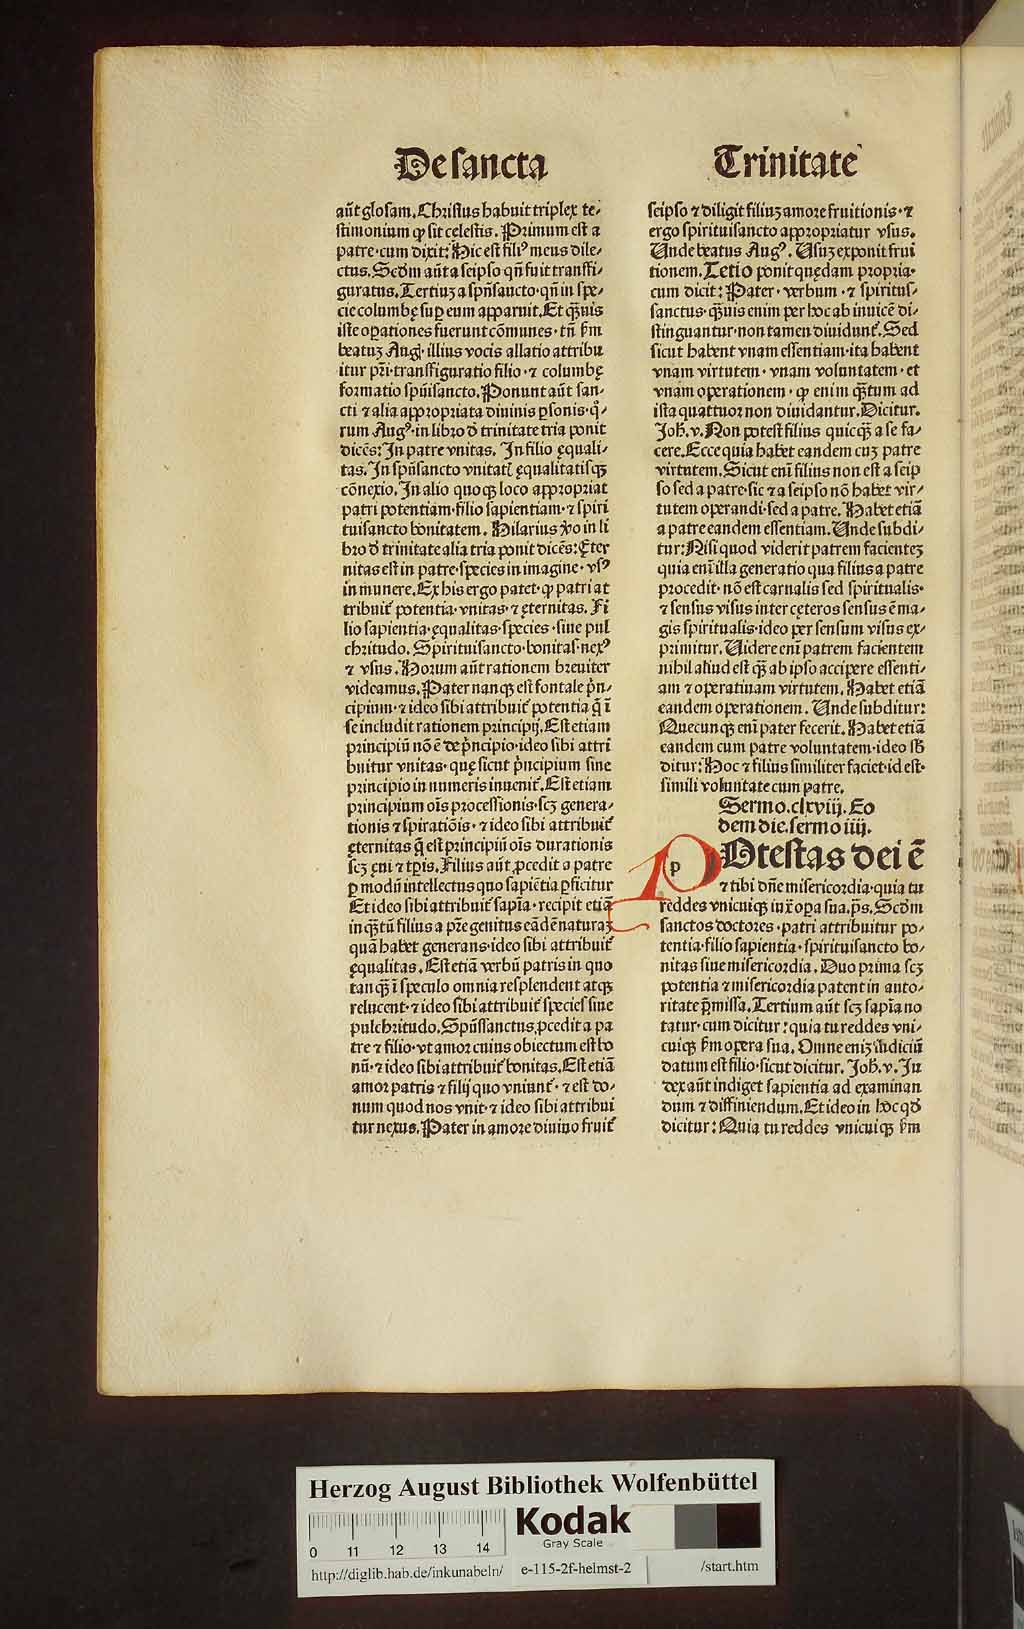 De sancta Trinitate
aūt glosam. Christus habuit triplex te-
stimonium qꝫ sit celestis. Primum est a
patre·cum dixit: Hic est filiꝰ meus dile-
ctus. Scd̄m aūt a seipso qn̄ fuit transfi-
guratus. Tertiuꝫ a spūsancto·qn̄ in spe-
cie columbę suꝑ eum apparuit. Et qꝫuis
iste oꝑationes fuerunt cōmunes·tn̄ ẜm
beatuꝫ Augꝰ·illius vocis allatio attribu
itur pr̄i·transfiguratio filio·⁊ columbę
formatio spūisancto. Ponunt aūt san-
cti ⁊ alia appropriata diuinis ꝑsonis·q̄-
rum Augꝰ·in libro d̄ trinitate tria ponit
dicēs: In patre vnitas. In filio ęquali-
tas. In spūsancto vnitatꝭ ęqualitatisqꝫ
cōnexio. In alio quoqꝫ loco appropriat
patri potentiam·filio sapientiam·⁊ spiri
tuisancto bonitatem. Hilarius ꝟo in li
bro d̄ trinitate alia tria ponit dicēs: Ęter
nitas est in patre·species in imagine·vsꝰ
in munere. Ex his ergo patet·ꝙ patri at
tribuit᷑ potentia·vnitas·⁊ ęternitas. Fi
lio sapientia·ęqualitas·species·siue pul
chritudo. Spirituisancto·bonitas·nexꝰ
⁊ vsus. Horum aūt rationem breuiter
videamus. Pater nanqꝫ est fontale pͥn-
cipium·⁊ ideo sibi attribuit᷑ potentia q̄ ī
se includit rationem principij. Est etiam
principiū nō ē de pͥncipio·ideo sibi attri
buitur vnitas·quę sicut pͥncipium sine
principio in numeris inuenit᷑. Est etiam
principium oīs processionis·scꝫ genera-
tionis ⁊ spiratiōis·⁊ ideo sibi attribuit᷑
ęternitas q̄ est principiū oīs durationis
scꝫ ęui ⁊ tꝑis. Filius aūt ꝓcedit a patre
ꝑ modū intellectus quo sapiētia ꝑficitur
Et ideo sibi attribuit᷑ sapīa·recipit etiā
in qꝫtū filius a pr̄e genitus eādē naturaꝫ
quā habet generans·ideo sibi attribuit᷑
ęqualitas. Est etiā verbū patris in quo
tanqꝫ ī speculo omnia resplendent atqꝫ
relucent·⁊ ideo sibi attribuit᷑ species siue
pulchritudo. Spūssanctus ꝓcedit a pa
tre ⁊ filio·vt amor cuius obiectum est bo
nū·⁊ ideo sibi attribuit᷑ bonitas. Est etiā
amor patris ⁊ filij quo vniunt᷑·⁊ est do-
num quod nos vnit·⁊ ideo sibi attribui
tur nexus. Pater in amore diuino fruit᷑
seipso ⁊ diligit filiuꝫ amore fruitionis·⁊
ergo spirituisancto appropriatur vsus.
Unde beatus Augꝰ. Usuꝫ exponit frui
tionem. Tetio ponit quędam propria·
cum dicit: Pater·verbum·⁊ spiritus-
sanctus·qꝫuis enim per hoc ab inuicē di-
stinguantur·non tamen diuidunt᷑. Sed
sicut habent vnam essentiam·ita habent
vnam virtutem·vnam voluntatem·et
vnam operationem·ꝙ enim qꝫtum ad
ista quattuor non diuidantur. Dicitur.
Joh̄. v. Non potest filius quicqꝫ a se fa-
cere. Ecce quia habet eandem cuꝫ patre
virtutem. Sicut enī filius non est a seip
so sed a patre·sic ⁊ a seipso nō habet vir-
tutem operandi·sed a patre. Habet etiā
a patre eandem essentiam. Unde subdi-
tur: Nisi quod viderit patrem facienteꝫ
quia enī illa generatio qua filius a patre
procedit·nō est carnalis sed spiritualis·
⁊ sensus visus inter cęteros sensus ē ma-
gis spiritualis·ideo per sensum visus ex-
primitur. Uidere enī patrem facientem
nihil aliud est qꝫ ab ipso accipere essenti-
am ⁊ operatiuam virtutem. Habet etiā
eandem operationem. Unde subditur:
Quecunqꝫ enī pater fecerit. Habet etiā
eandem cum patre voluntatem·ideo sb̄
ditur: Hoc ⁊ filius similiter faciet·id est·
simili voluntate cum patre.
Sermo. clxviij. Eo
dem die. sermo iiij.
p Otestas dei ē
⁊ tibi dn̄e misericordia·quia tu
reddes vnicuiqꝫ iuꝟ oꝑa sua. ps̄. Scd̄m
sanctos doctores·patri attribuitur po-
tentia·filio sapientia·spirituisancto bo-
nitas siue misericordia. Duo prima scꝫ
potentia ⁊ misericordia patent in auto-
ritate p̄missa. Tertium aūt scꝫ sapīa no
tatur·cum dicitur: quia tu reddes vni-
cuiqꝫ ẜm opera sua. Omne eniꝫ iudiciū
datum est filio·sicut dicitur. Joh̄. v. Ju
dex aūt indiget sapientia ad examinan
dum ⁊ diffiniendum. Et ideo in hoc qd̄
dicitur: Quia tu reddes vnicuiqꝫ ẜm
Herzog August Bibliothek Wolfenbüttel
Kodak
Gray Scale
0 11 12 13 14
http://diglib.hab.de/inkunabeln/ e-115-2f-helmst-2 /start.htm